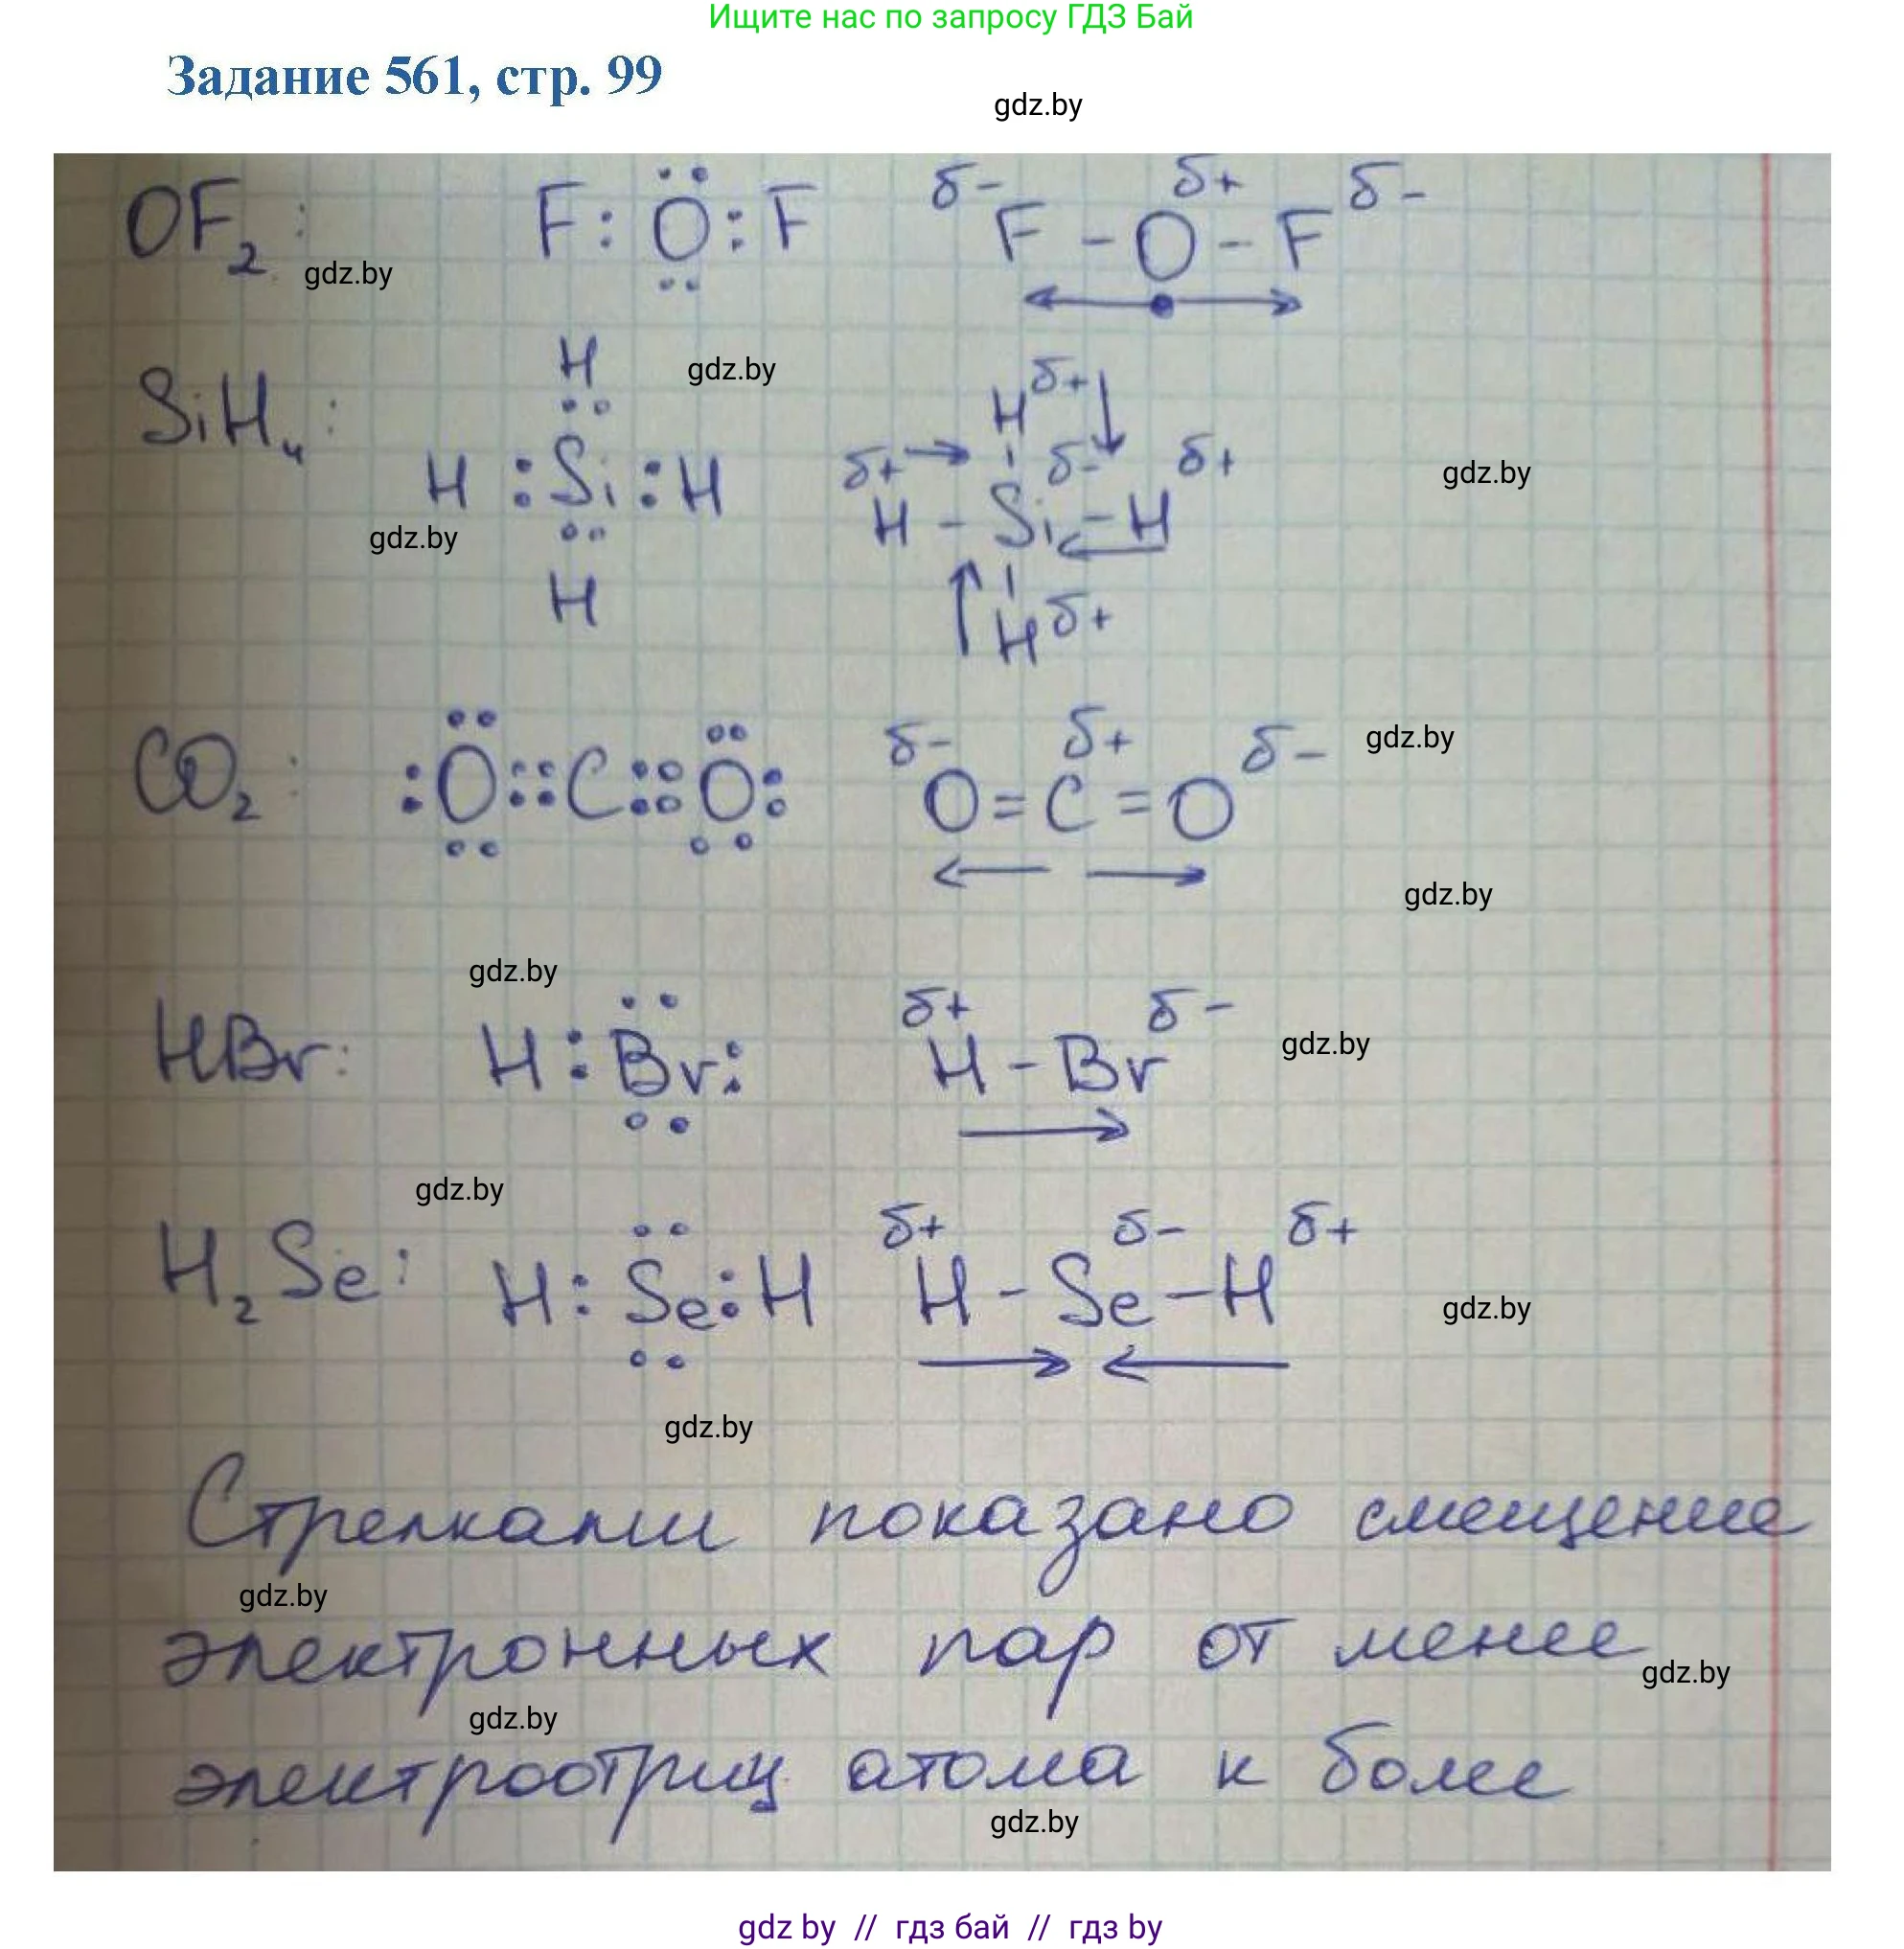 Ищите нас по запросу ГДЗ Бай
Задание 561, стр. 99
gdz.by
OF₂: F : O : F δ- F - O δ+ - F δ-
gdz.by
SiH₄: H
gdz.by
H δ+
H : Si : H δ+ H - Si δ- - H δ+
gdz.by
gdz.by
H H δ+
CO₂: : O :: C :: O : δ- O = C δ+ = O δ-
gdz.by
gdz.by
gdz.by
HBr: H : Br : δ+ H - Br δ-
gdz.by
gdz.by
H₂Se: H : Se : H δ+ H - Se δ- - H δ+
gdz.by
gdz.by
Стрелками показано смещение
gdz.by
электронных пар от менее
gdz.by
gdz.by
электроотриц атома к более
gdz.by
gdz by // гдз бай // гдз by